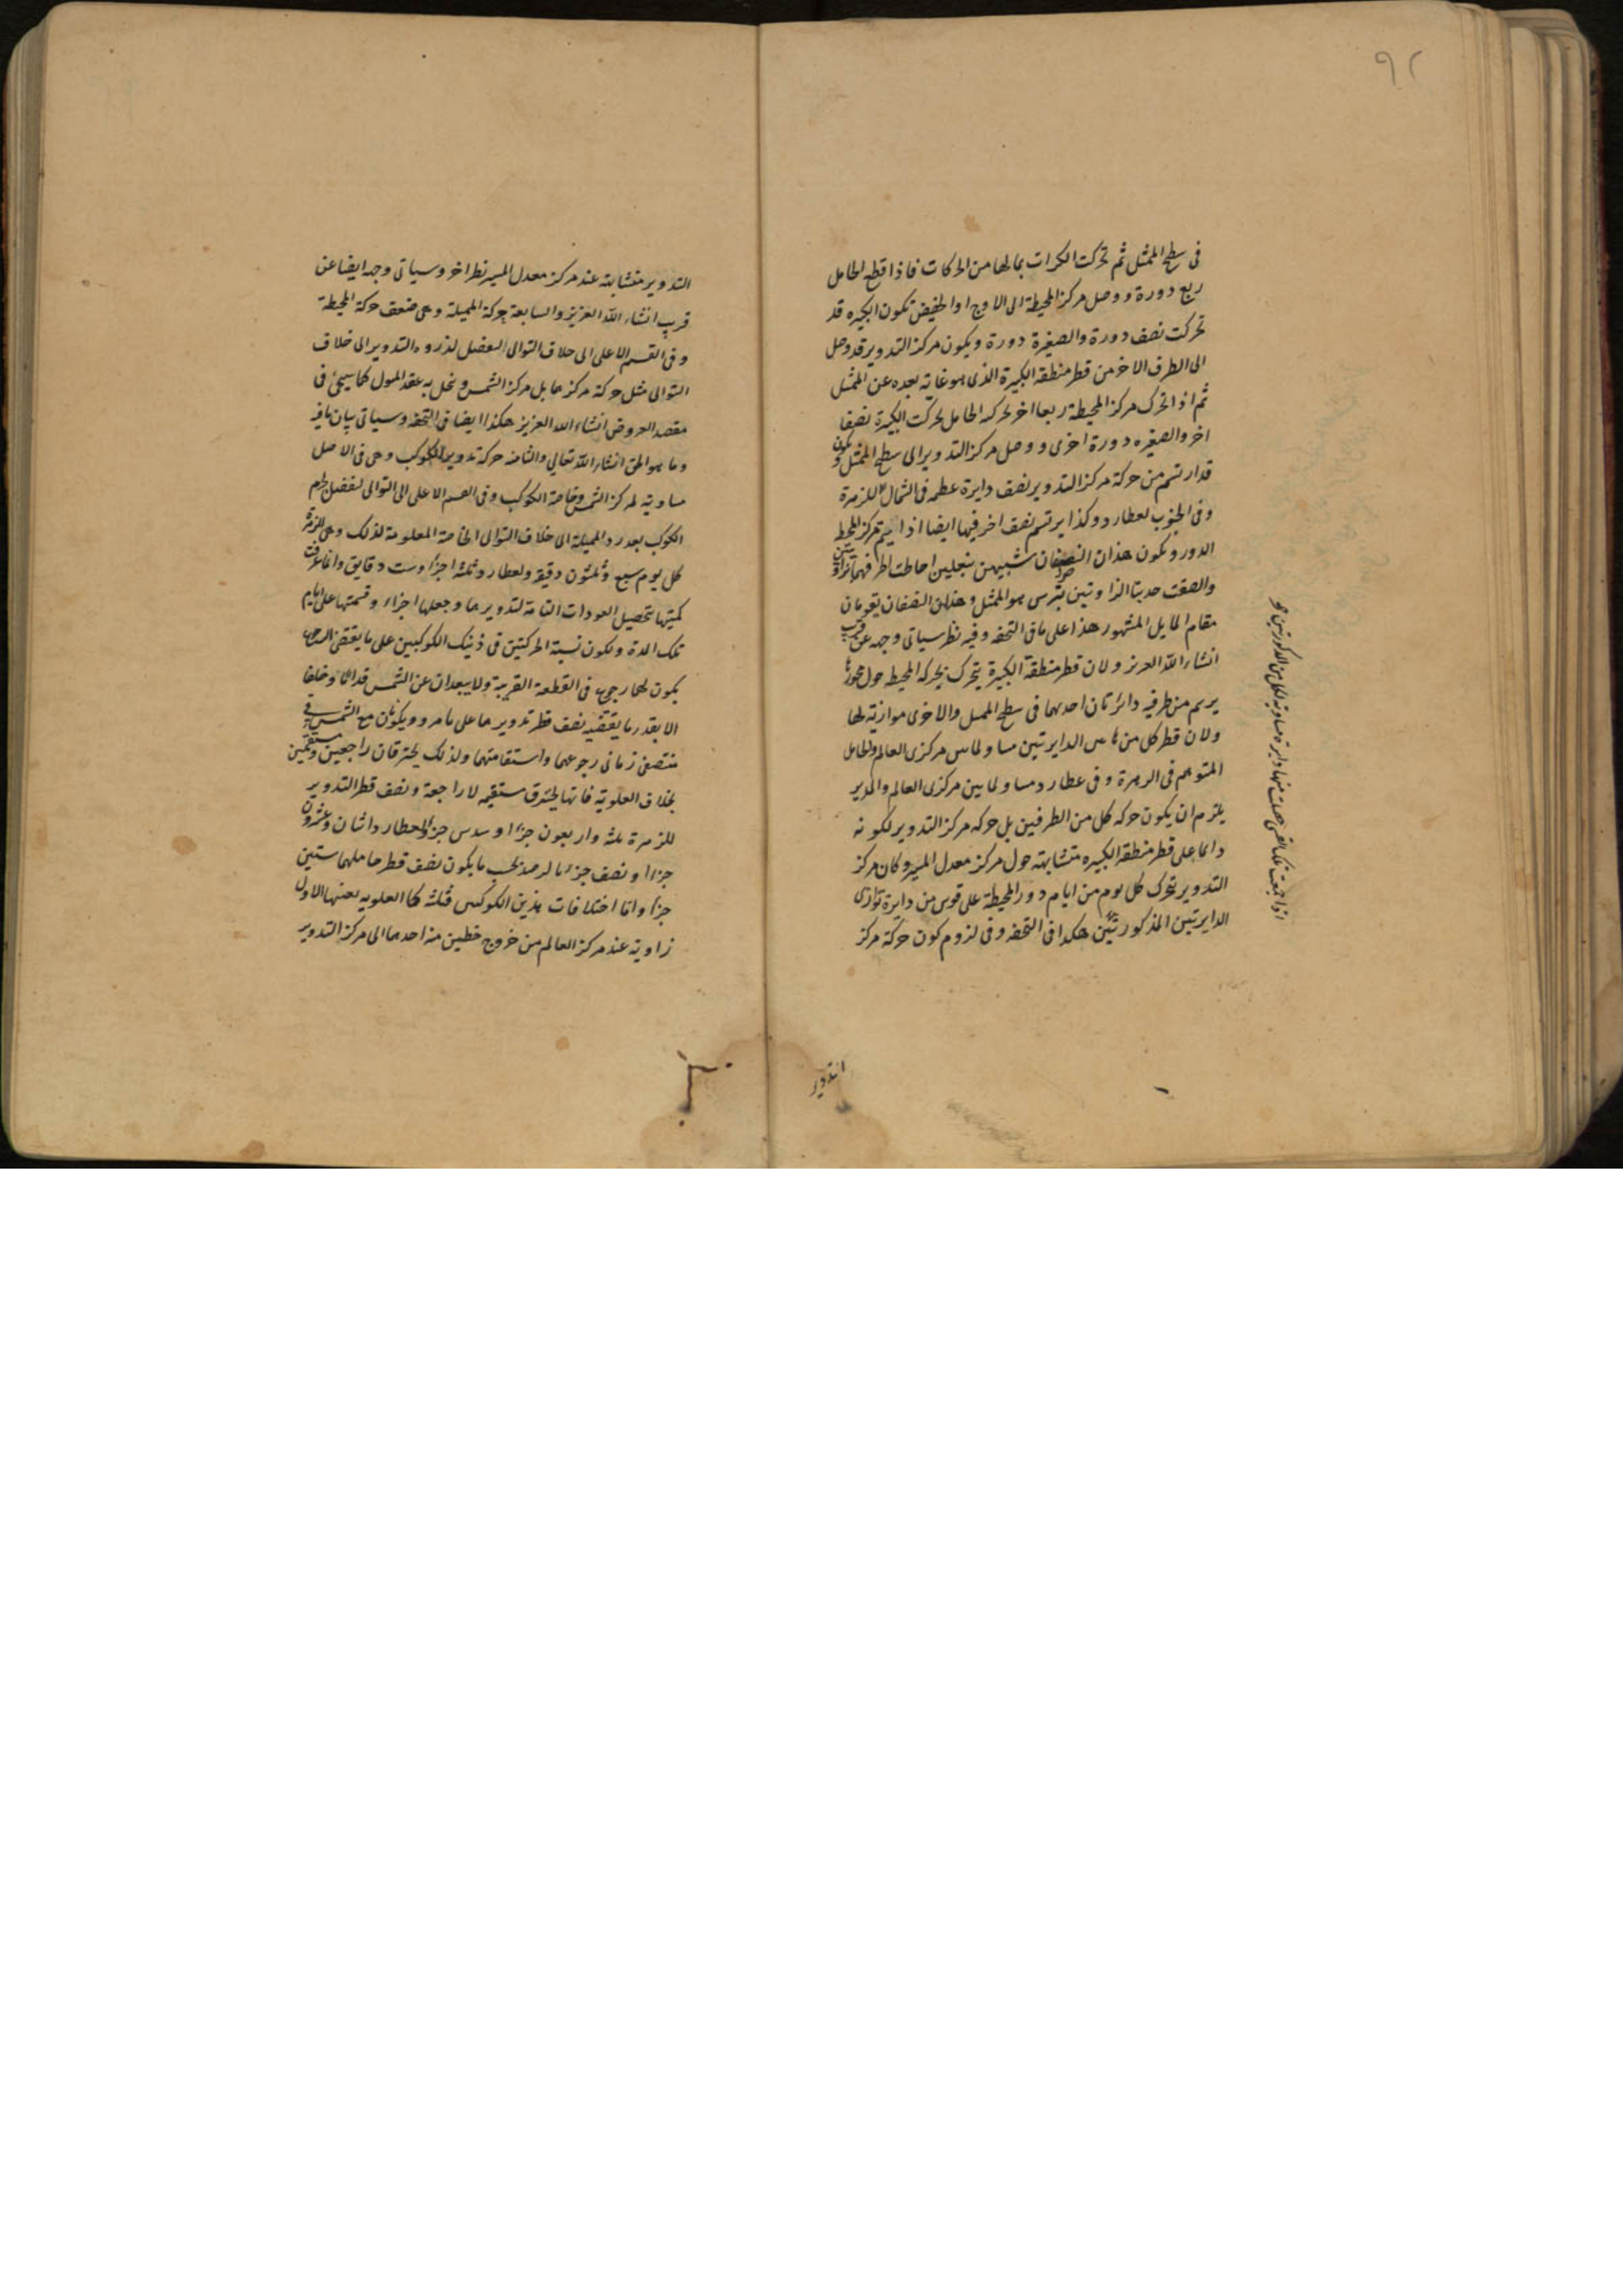 ٩٢
فى سطح الممثل ثم تحركت الكرات بمالها من الحركات فاذا قطع الحامل
ربع دورة ووصل مركز المحيطة الى الاوج او الحضيض تكون الكبيره قد
تحركت نصف دورة والصغيرة دورة ويكون مركز التدوير قد وصل
الى الطرف الاخر من قطر منطقة الكبيرة الذى هو غاية بعده عن الممثل
ثم اذا تحرك مركز المحيطة ربعا اخر بحركة الحامل تحركت الكبيرة نصفا
اخر والصغيره دورة اخرى ووصل مركز التدوير الى سطح الممثل ويكون
قد ارتسم من حركة مركز التدوير نصف دايرة عظيمه فى الشمال للزهرة
وفى الجنوب لعطارد وكذا يرتسم نصف اخر فيها ايضا اذا تم مركز المحيط
الدور ويكون هذان النصفان شبيهين بنعلين احاطت اطرافهما بزاويتين
والصقت حدبتا الزاويتين بترس هو الممثل وهذان النصفان يقومان
مقام المايل المشهور هذا على ما فى التحفه وفيه نظر سياتى وجهه عن قريب
انشاء الله العزيز ولان قطر منطقة الكبيرة يتحرك بحركه المحيط حول محورها
يرسم من طرفيه دائرتان احديهما فى سطح الممثل والاخرى موازية لها
ولان قطر كل من هاتين الدايرتين مساو لما بين مركزى العالم والحامل
المتوهم فى الزهرة وفى عطارد مساو لما بين مركزى العالم والمدير
يلزم ان يكون حركه كل من الطرفين بل حركه مركز التدوير لكونه
دائما على قطر منطقة الكبيره متشابهة حول مركز معدل المسير وكان مركز
التدوير يتحرك كل يوم من ايام دور المحيطة على قوس من دايرة توازى
الدايرتين المذكورتين هكذا فى التحفه وفى لزوم كون حركة مركز
اذا جمعت تلك القسى حصلت منها دايرة مساوية لكل من المذكورتين
التدوير
التدوير متشابهة عند مركز معدل المسير نظر اخر وسياتى وجهه ايضا عن
قريب انشاء الله العزيز والسابعة حركة المميلة وهى ضعف حركة المحيطة
وفى القسم الاعلى الى خلاف التوالى ليفضل لذروه التدوير الى خلاف
التوالى مثل حركة مركز حامل مركز الشمس وينحل به عقد المول كما سيجئ فى
مقصد العروض انشاء الله العزيز هكذا ايضا فى التحفه وسياتى بيان ما فيه
وما هو الحق انشاء الله تعالى والثامنه حركة تدوير الكوكب وهى فى الاصل
مساوية لمركز الشمس وخاصة الكوكب وفى القسم الاعلى الى التوالى ليفضل لجرم
الكوكب بعد رد المميلة الى خلاف التوالى الخاصة المعلومة لذلك وهى للزهرة
كل يوم سبع وثلثون دقيقة ولعطارد ثلثة اجزاء وست دقايق وانما عرفت
كميتها بتحصيل العودات التامة لتدويرها وجعلها اجزاء وقسمتها على ايام
تلك المدة ولكون نسبة الحركتين فى ذينك الكوكبين على ما يقتضى الرجوع
يكون لهما رجوع فى القطعة القريبة ولا يبعدان عن الشمس قداما وخلفا
الا بقدر ما يقتضيه نصف قطر تدويرهما على ما مر ويكونان مع الشمس فى
منتصفى زمانى رجوعهما واستقامتهما ولذلك يحترقان راجعين ومستقيمين
بخلاف العلوية فانها تحترق مستقيمة لا راجعة ونصف قطر التدوير
للزهرة ثلثة واربعون جزءا وسدس جزء ولعطارد اثنان وعشرون
جزءا ونصف جزء بالرصد بحسب ما يكون نصف قطر حاملهما ستين
جزءا واما اختلافات هذين الكوكبين فثلثة كما للعلويه بعينها الاول
زاوية عند مركز العالم من خروج خطين منه احدهما الى مركز التدوير